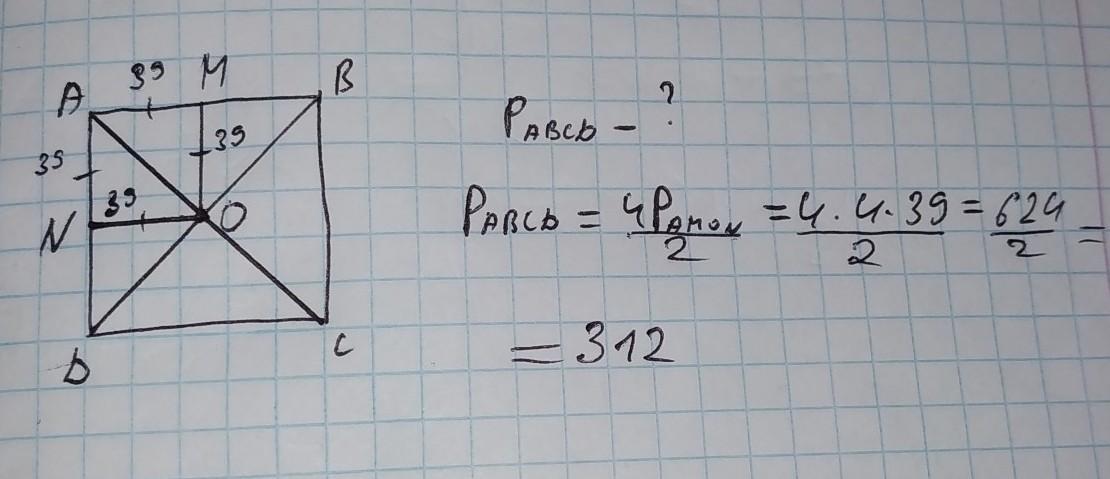 39 M B
A
39
39
39
N O
D C
P_ABCD - ?
P_ABCD = 4P_AMON / 2 = 4 · 4 · 39 / 2 = 624 / 2 =
= 312